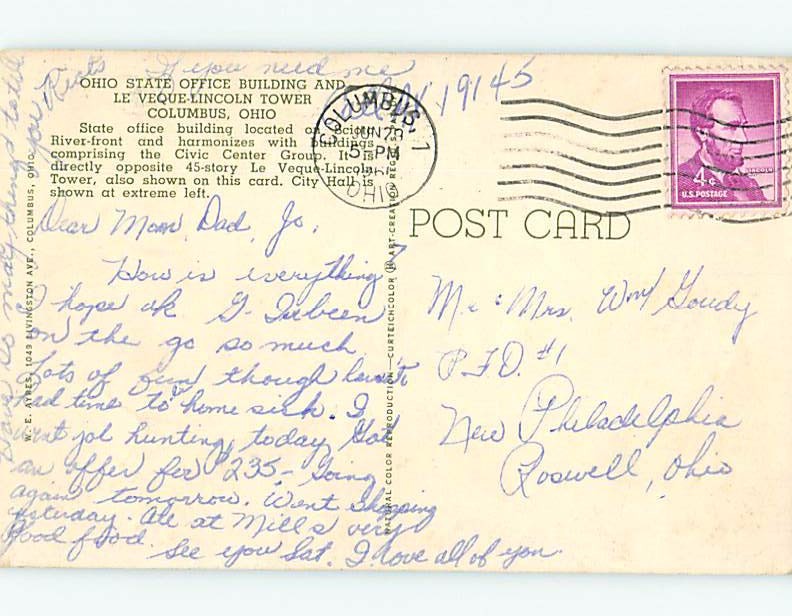 If you need me
call W 19145
OHIO STATE OFFICE BUILDING AND
LE VEQUE-LINCOLN TOWER
COLUMBUS, OHIO
State office building located on Scioto
River-front and harmonizes with buildings
comprising the Civic Center Group. It is
directly opposite 45-story Le Veque-Lincoln
Tower, also shown on this card. City Hall is
shown at extreme left.
Dear Mom, Dad, Jo,
How is everything?
I hope ok I've been
on the go so much
Lots of fun though haven't
had time to be home sick. I
went job hunting today Got
an offer for 235 - Going
again tomorrow. Went shopping
yesterday. Ate at Mills very
good food. See you Sat. I love all of you.
Have so many things to tell
you
W. E. AYRES, 1049 LIVINGSTON AVE., COLUMBUS, OHIO
NATURAL COLOR REPRODUCTION - CURTEICHCOLOR ® ART-CREATION
COLUMBUS, 1
JUN 23
5 PM
OHIO
4¢
U.S. POSTAGE
LINCOLN
POST CARD
Mr. & Mrs. Wm Goudy
R.F.D. #1
New Philadelphia
Roswell, Ohio